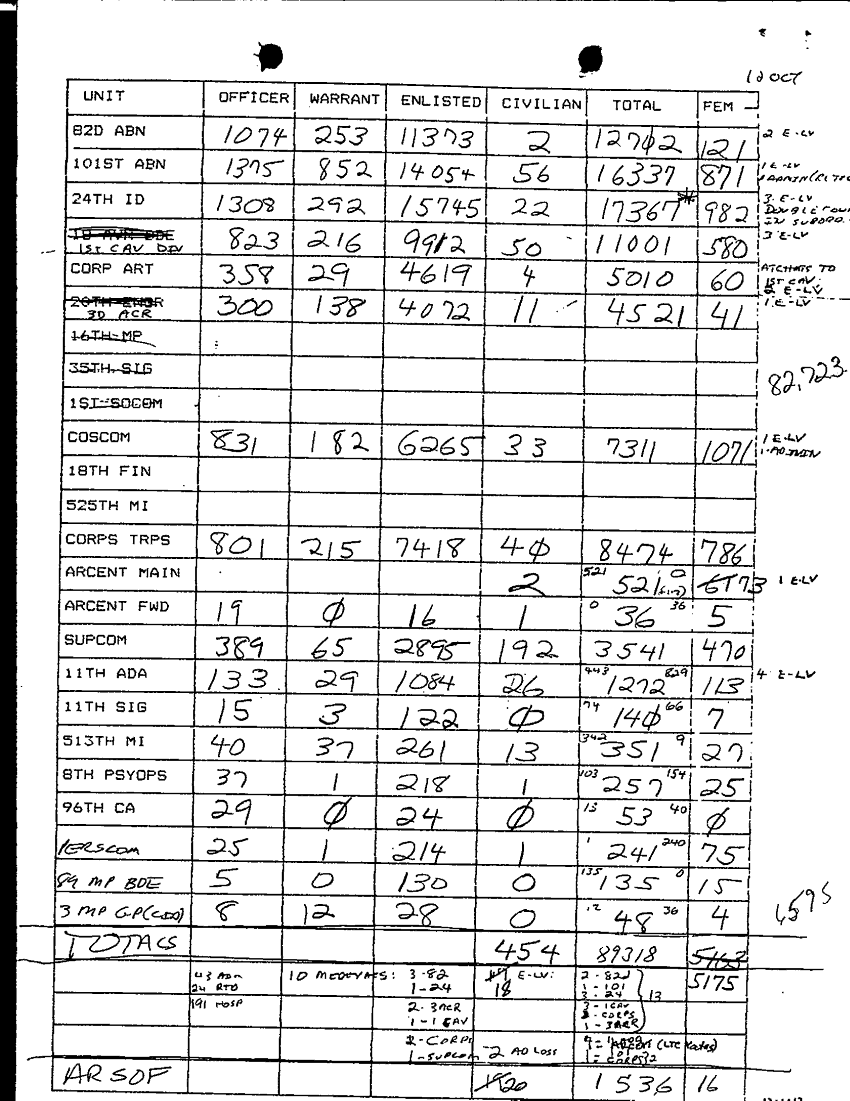 12 OCT
UNIT OFFICER WARRANT ENLISTED CIVILIAN TOTAL FEM
82D ABN 1074 253 11373 2 12702 121 2 E-LV
101ST ABN 1375 852 14054 56 16337 871 1 E-LV
24TH ID 1308 292 15745 22 17367* 982 3 E-LV
DOUBLE
18 AVN BDE
1ST CAV DIV 823 216 9912 50 11001 580 3 E-LV
CORP ART 358 29 4619 4 5010 60 ATCHMTS TO
1ST CAV
2 E-LV
20TH ENGR
3D ACR 300 138 4072 11 4521 41 1 E-LV
16TH MP
35TH SIG 82,723
1ST SOCOM
COSCOM 831 182 6265 33 7311 1071 1 E-LV
18TH FIN
525TH MI
CORPS TRPS 801 215 7418 40 8474 786
ARCENT MAIN 2 521 521 0 73 1 E-LV
ARCENT FWD 19 0 16 1 0 36 36 5
SUPCOM 389 65 2895 192 3541 470
11TH ADA 133 29 1084 26 443 1272 829 113 4 E-LV
11TH SIG 15 3 122 0 74 140 66 7
513TH MI 40 37 261 13 342 351 9 27
8TH PSYOPS 37 1 218 1 103 257 154 25
96TH CA 29 0 24 0 13 53 40 0
PERSCOM 25 1 214 1 1 241 240 75
89 MP BDE 5 0 130 0 135 135 0 15
3 MP GP 8 12 28 0 12 48 36 4
6595
TOTALS 454 89318 5163
5175
43 ADM 10 MEDEVACS: 3-82 E-LV: 2-82d
24 RTD 1-24 18 1-101
3-24 13
191 HOSP 2-3ACR 3-1CAV
1-1 CAV 2-CORPS
1-3ACR
2-CORPS
1-SUPCOM -2 AD LOSS
ARSOF 1536 16